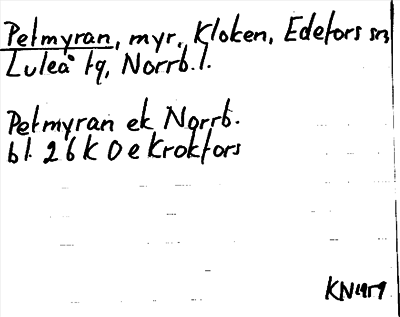 Petmyran, myr, Kloken, Edefors sn,
Luleå tg, Norrb. l.
Petmyran ek Norrb.
bl. 26 K 0 e Krokfors